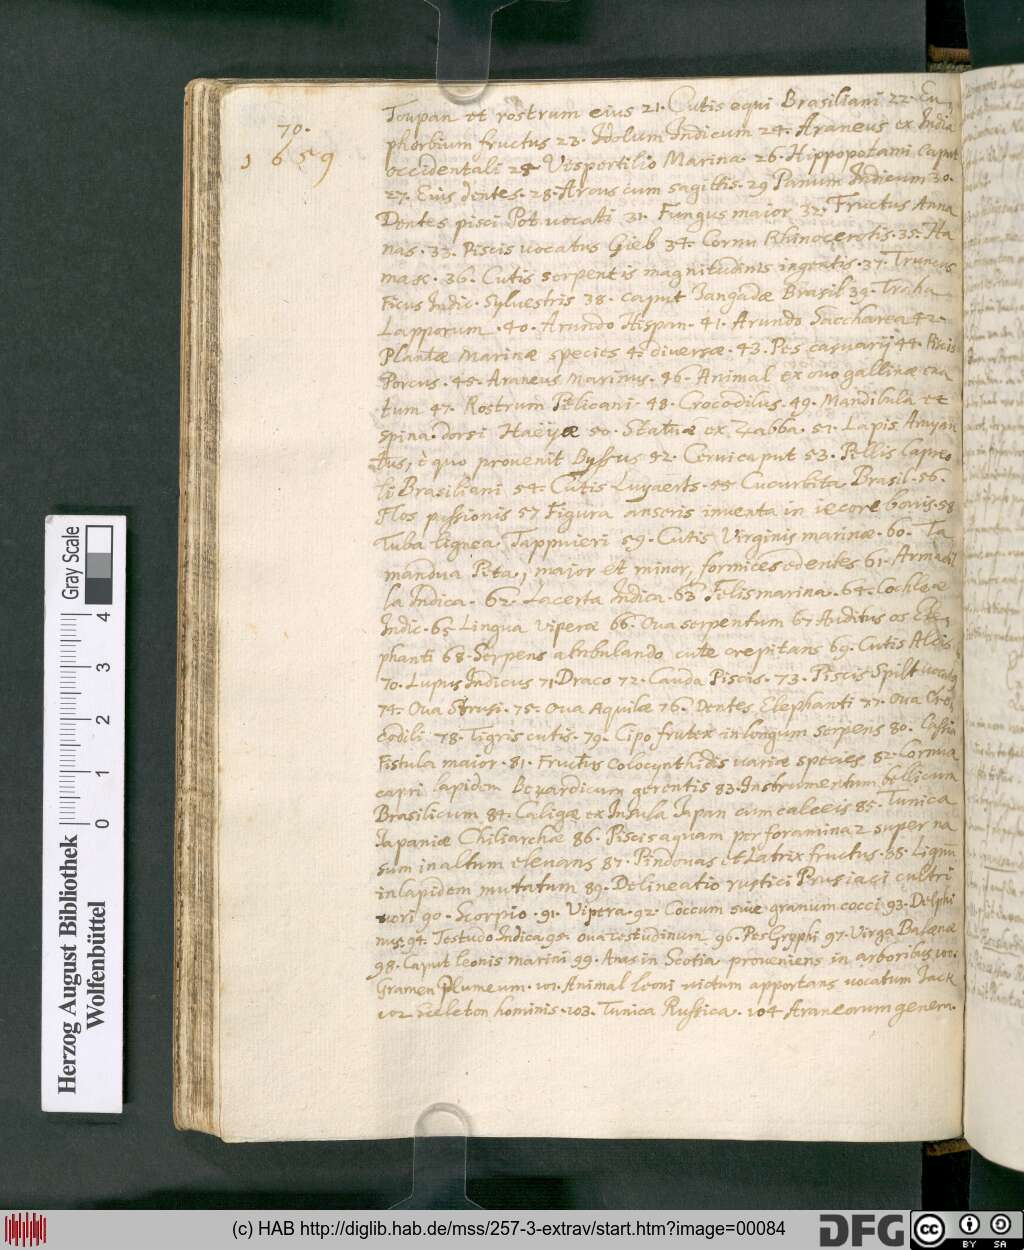 70.
1659
Toupan et rostrum eius 21. Cutis equi Brasiliani 22. Eu-
phorbium fructus 23. Idolum Indicum 24. Araneus ex India
occidentali 25 Vispertilio Marina. 26. Hippopotami Caput
27. Eius dentes. 28. Arcus cum sagittis. 29 Panum Indicum 30.
Dentes pisci Pot vocati 31. Fungus maior 32. Fructus Anna
nas. 33. Piscis vocatus Gieb 34. Cornu Rhinocerotis. 35. Ha
mack. 36. Cutis serpentis magnitudinis ingentis. 37. Truncus
Ficus Indic. Sylvestris 38. caput Jangadæ Brasil 39. Traha
Lapporum. 40. Arundo Hispan. 41. Arundo Saccharea 42.
Plantæ marinæ species 4. diversæ. 43. Pes casuarij 44. Piscis
Porcus. 45. Araneus Marinus. 46. Animal ex ovo gallinæ ena
tum 47. Rostrum Pelicani. 48. Crocodilus. 49. Mandibula et
spina dorsi Haeyæ 50. Statuæ ex Zabba. 51. Lapis Amyan
tus, è quo provenit Byssus 52. Cervi caput 53. Pellis Capreo
li Brasiliani 54. Cutis Luyaerts. 55. Cucurbita Brasil. 56.
Flos passionis 57 Figura anseris inventa in iecore bovis. 58
Tuba lignea Tappuieri 59. Cutis Virginis marinæ. 60. Ta
mandua Pita, major et minor, formices edentes 61. Armadil
la Indica. 62. Lacerta Indica. 63. Felis marina. 64. Cochleæ
Indic. 65. Lingua viperæ 66. Ova serpentum 67 Auditus os Ele-
phanti 68. Serpens ambulando cute crepitans 69. Cutis
70. Lupus Indicus 71. Draco 72. Cauda Piscis. 73. Piscis Spilt vocatus
74. Ova Strusi. 75. Ova Aquilæ 76. Dentes Elephanti 77. Ova Cro
codili 78. Tigris cutis. 79. Cipo frutex in longum serpens 80. Cassia
Fistula maior. 81. Fructus Colocynthidis variæ species 82. Cornua
capri lapidem Bezardicum gerentis 83. Instrumentum bellicum
Brasilicum 84. Caligæ ex Insula Japan cum calceis 85. Tunica
Japaniæ Chiliarchæ 86. Piscis aquam per foramina 2 super na
sum in altum elevans 87. Pindovas et Latrix fructus. 88. Lignum
in lapidem mutatum 89. Delineatio rustici Prusiaci cultri
vori 90. Scorpio. 91. Vipera. 92. Coccum sive granum cocci 93. Delphi
nus. 94. Testudo Indica 95. ova testudinum 96. Pes Gryphi 97. Virga Balænæ
98. Caput leonis marini 99. Anas in Scotia proveniens in arboribus 100.
Gramen Plumeum. 101. Animal leoni victum apportans vocatum Jack
102 sceleton hominis. 103. Tunica Russica. 104 Araneorum genera.
Gray Scale
0 1 2 3 4
Herzog August Bibliothek
Wolfenbüttel
(c) HAB http://diglib.hab.de/mss/257-3-extrav/start.htm?image=00084
DFG
CC BY SA